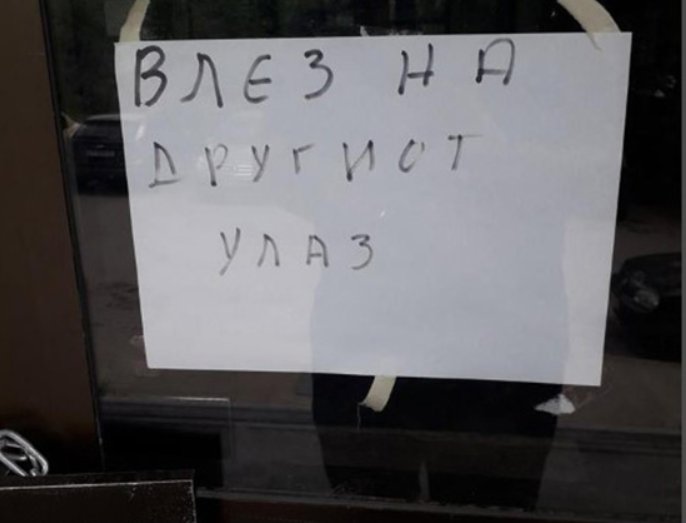 ВЛЕЗ НА
ДРУГИОТ
УЛАЗ